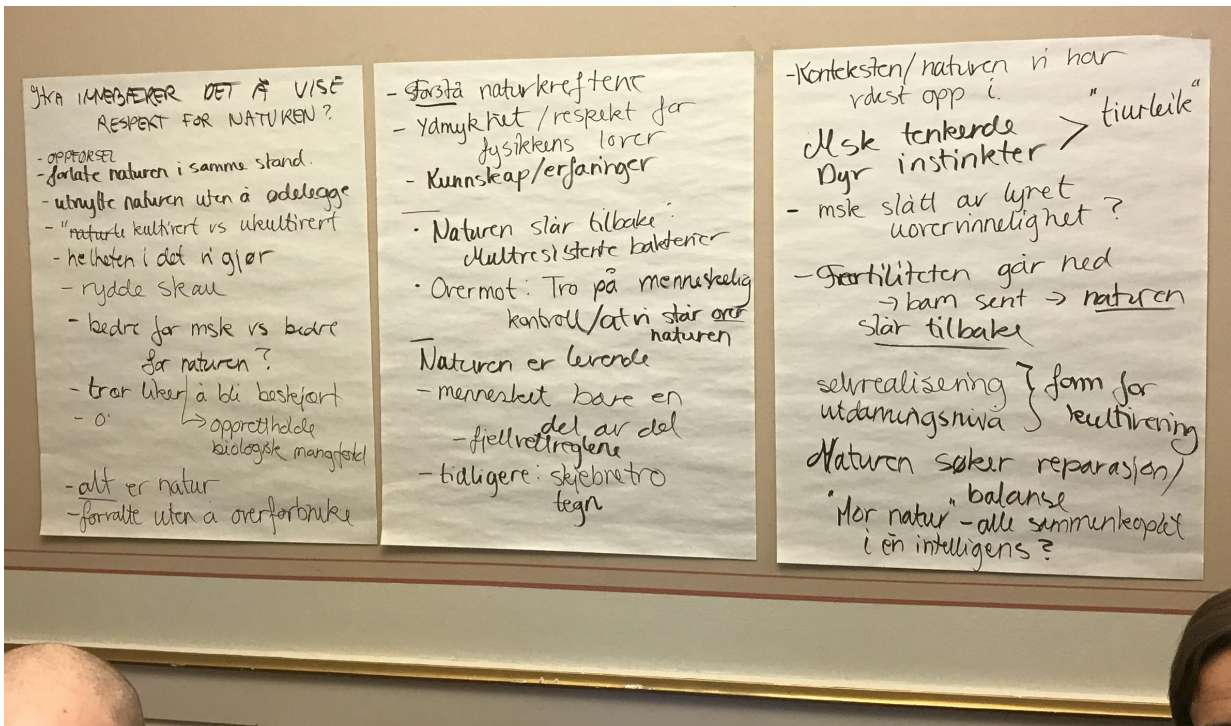 HVA INNEBÆRER DET Å VISE
RESPEKT FOR NATUREN?
- OPPFØRSEL
- forlate naturen i samme stand.
- utnytte naturen uten å ødelegge
- "naturte kultivert vs ukultivert
- helheten i det vi gjør
- rydde skau
- bedre for msk vs bedre
for naturen?
- trær liker å bli beskjært
- 0'
↳ opprettholde
biologisk mangfold
- alt er natur
- forvalte uten å overforbruke
- Forstå naturkreftene
- Ydmykhet / respekt for
fysikkens lover
- Kunnskap/erfaringer
· Naturen slår tilbake:
Multiresistente bakterier
· Overmot: Tro på menneskelig
kontroll/at vi står over
naturen
Naturen er levende
- mennesket bare en
del av del
- fjellvettreglene
- tidligere: skjebnetro
tegn
- Konteksten/naturen vi har
vokst opp i.
Msk tenkende
Dyr instinkter > "tiurleik"
- msk slått av lynet
uovervinnelighet?
- Fertiliteten går ned
→ barn sent → naturen
slår tilbake
selvrealisering } form for
utdanningsnivå } kultivering
Naturen søker reparasjon/
balanse
"Mor natur" - alle sammenkoplet
i én intelligens?